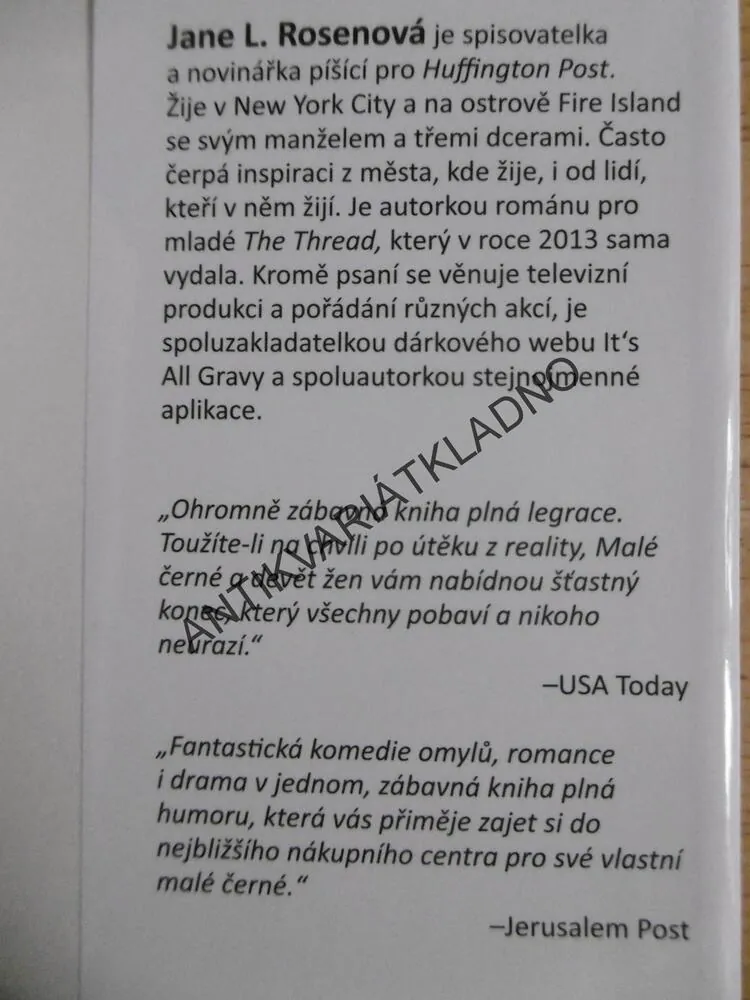 Jane L. Rosenová je spisovatelka
a novinářka píšící pro Huffington Post.
Žije v New York City a na ostrově Fire Island
se svým manželem a třemi dcerami. Často
čerpá inspiraci z města, kde žije, i od lidí,
kteří v něm žijí. Je autorkou románu pro
mladé The Thread, který v roce 2013 sama
vydala. Kromě psaní se věnuje televizní
produkci a pořádání různých akcí, je
spoluzakladatelkou dárkového webu It‘s
All Gravy a spoluautorkou stejnojmenné
aplikace.
„Ohromně zábavná kniha plná legrace.
Toužíte-li na chvíli po útěku z reality, Malé
černé a devět žen vám nabídnou šťastný
konec, který všechny pobaví a nikoho
neurazí.“
–USA Today
„Fantastická komedie omylů, romance
i drama v jednom, zábavná kniha plná
humoru, která vás přiměje zajet si do
nejbližšího nákupního centra pro své vlastní
malé černé.“
–Jerusalem Post
ANTIKVARIÁTKLADNO